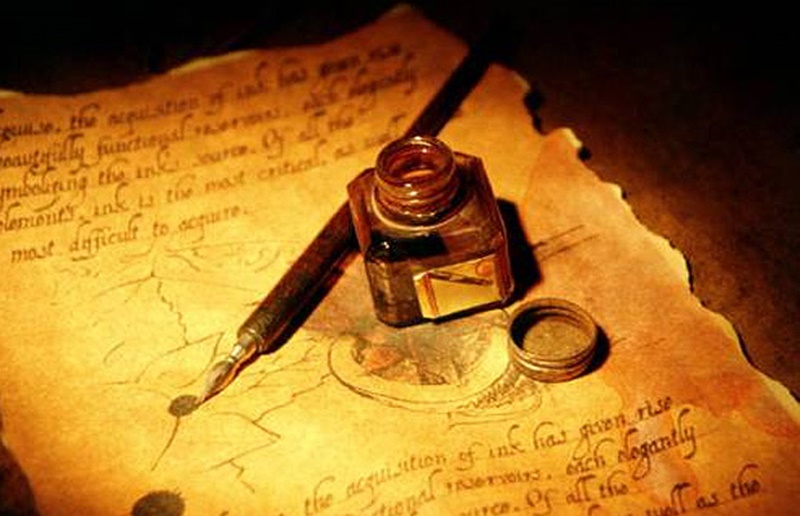 the acquisition of ink has given rise
beautifully functional reservoirs, each elegantly
symbolizing the inks source. Of all the
elements, ink is the most critical, as well
most difficult to acquire.
the acquisition of ink has given rise
reservoirs, each elegantly
Of all the
well as the